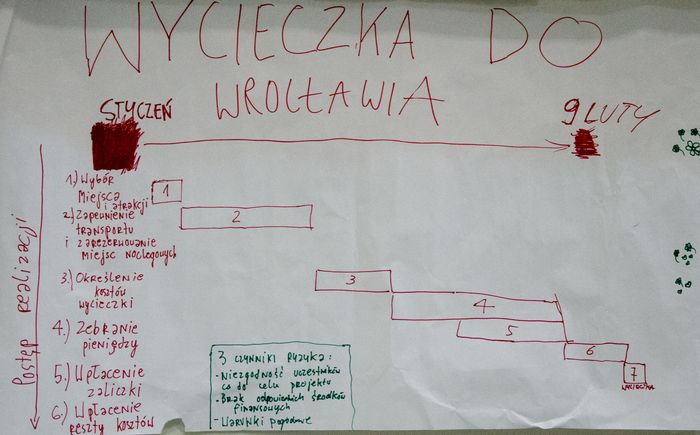 WYCIECZKA DO
WROCŁAWIA
STYCZEŃ
9 LUTY
Postęp realizacji
1.) Wybór
Miejsca
i atrakcji
2.) Zapewnienie
transportu
i zarezerwowanie
Miejsc noclegowych
3.) Określenie
kosztów
wycieczki
4.) Zebranie
pieniędzy
5.) Wpłacenie
zaliczki
6.) Wpłacenie
reszty kosztów
1
2
3
4
5
6
7
WYCIECZKA
3 CZYNNIKI RYZYKA:
- Niezgodność uczestników
co do celu projektu
- Brak odpowiednich środków
finansowych
- Warunki pogodowe